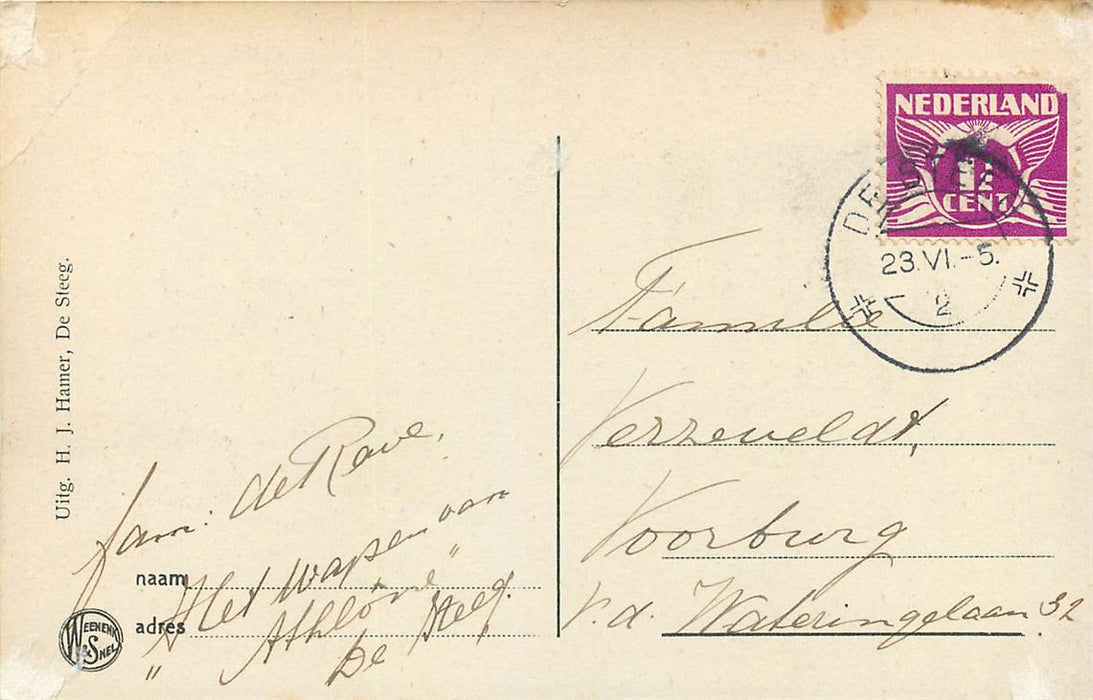 Uitg. H. J. Hamer, De Steeg.
fam: de Rave,
naam
"Het Wapen van
adres
Athlone"
De Steeg.
WEENENK & SNEL
NEDERLAND
1½
CENT
DE STEEG
23.VI.-5.
2
Familie
Verzeveldt,
Voorburg
v.d. Wateringelaan 32